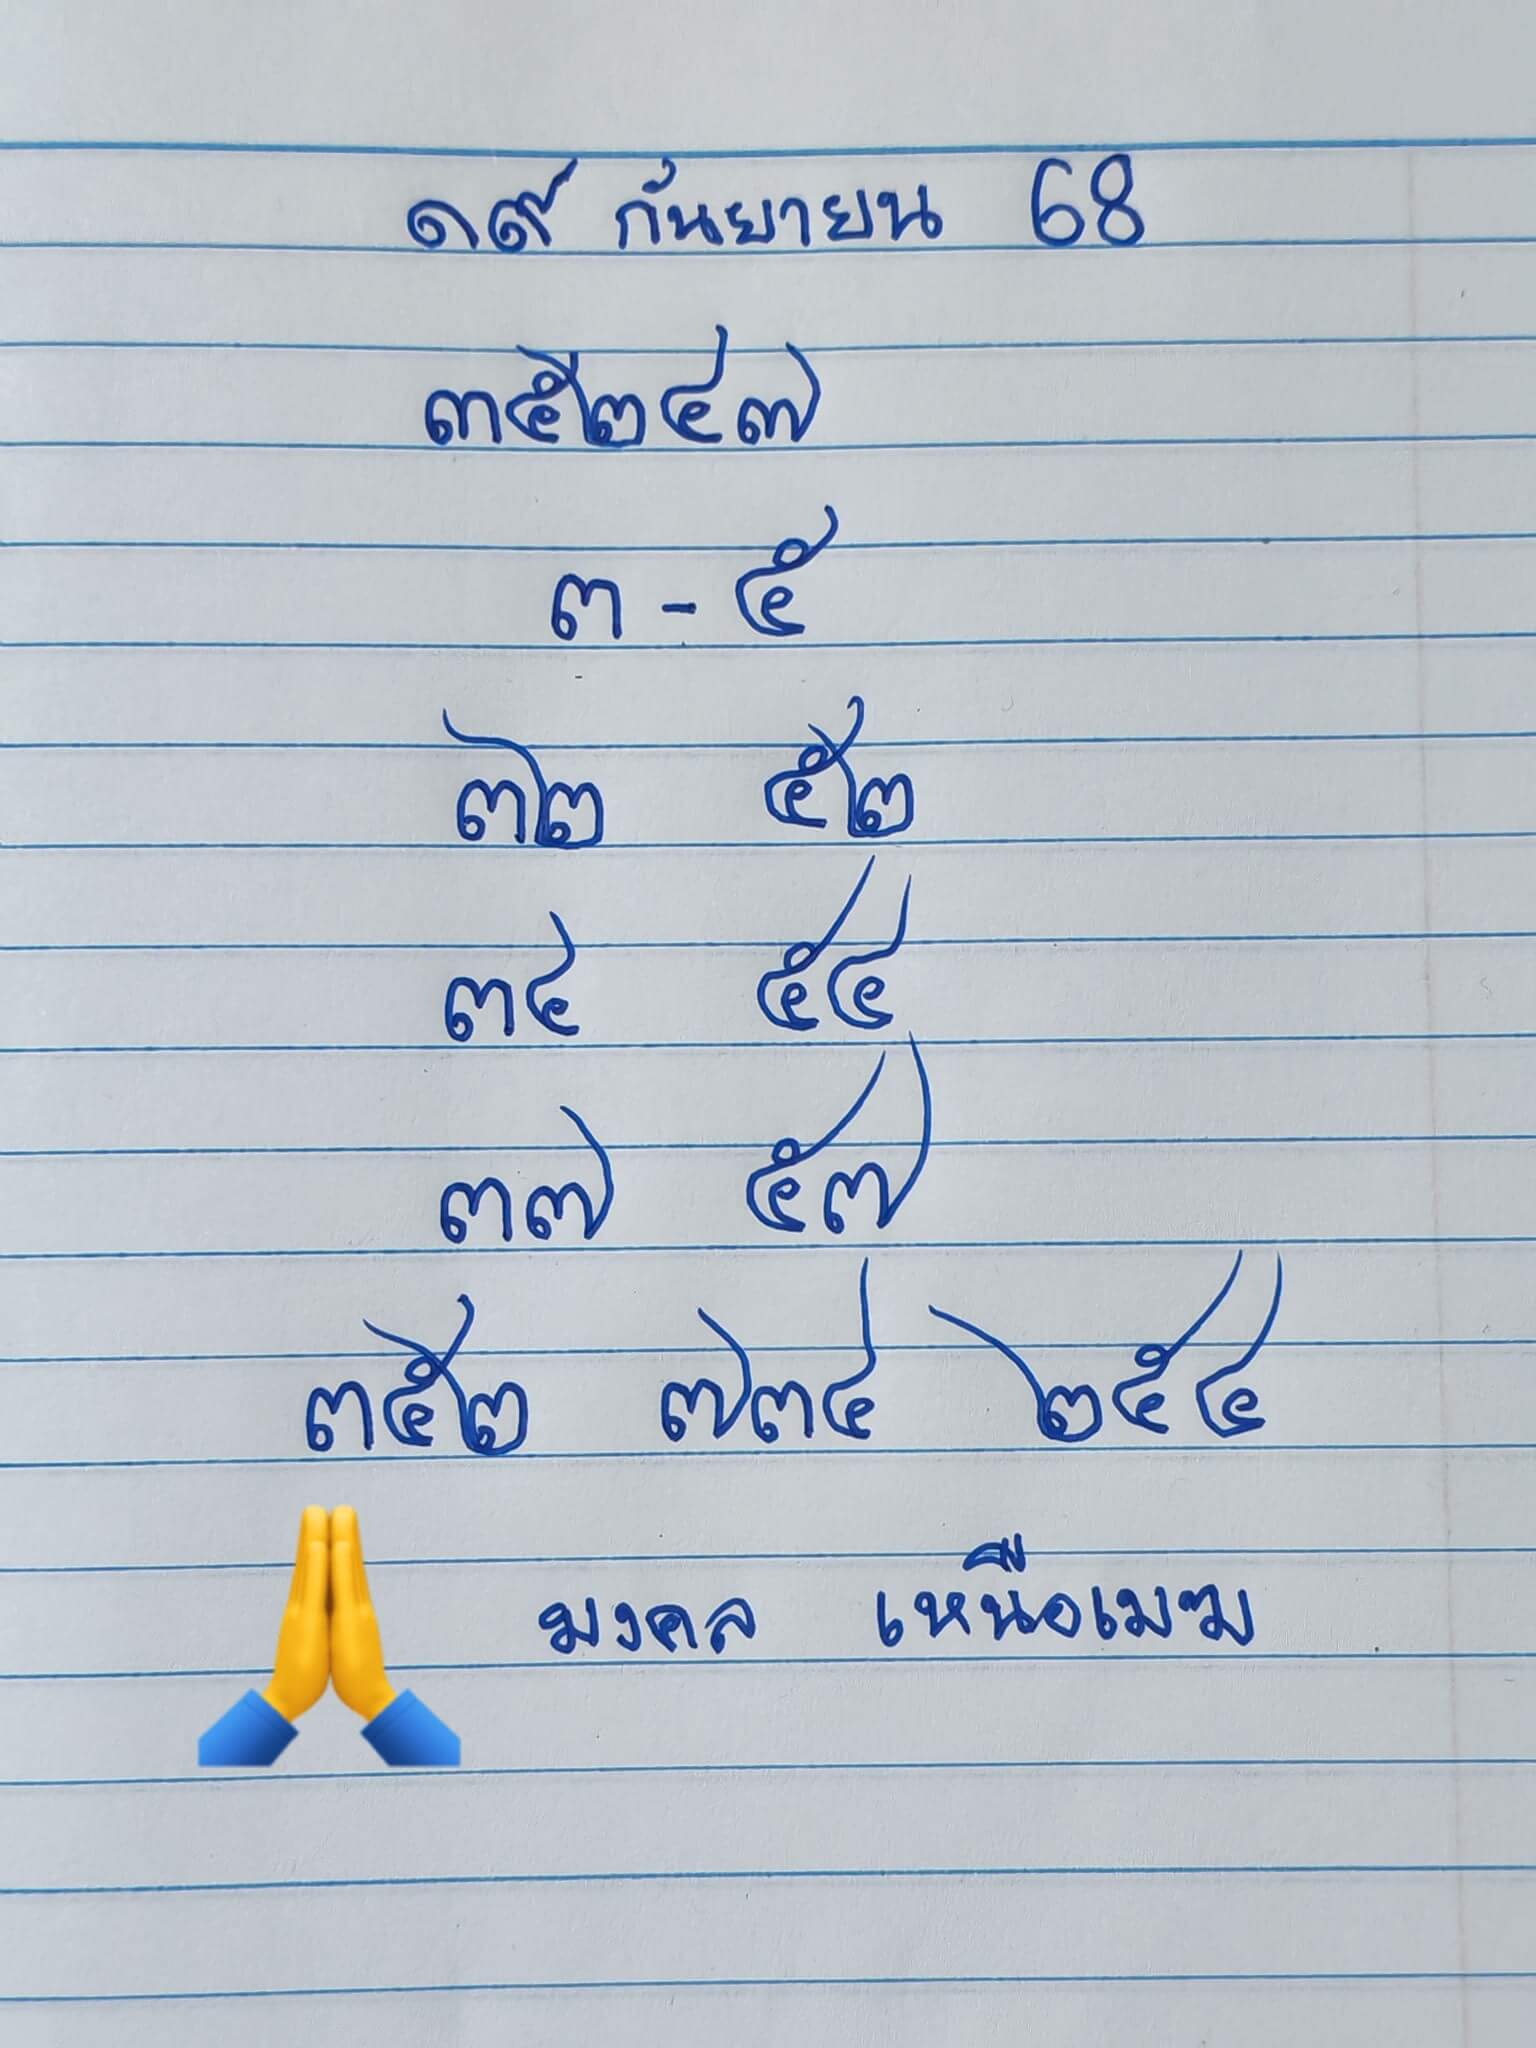 ๑๙ กันยายน 68
๓๕๒๔๗
๓ - ๕
๓๒ ๕๒
๓๔ ๕๔
๓๗ ๕๗
๓๕๒ ๗๓๔ ๒๕๔
มงคล เหนือเมฆ